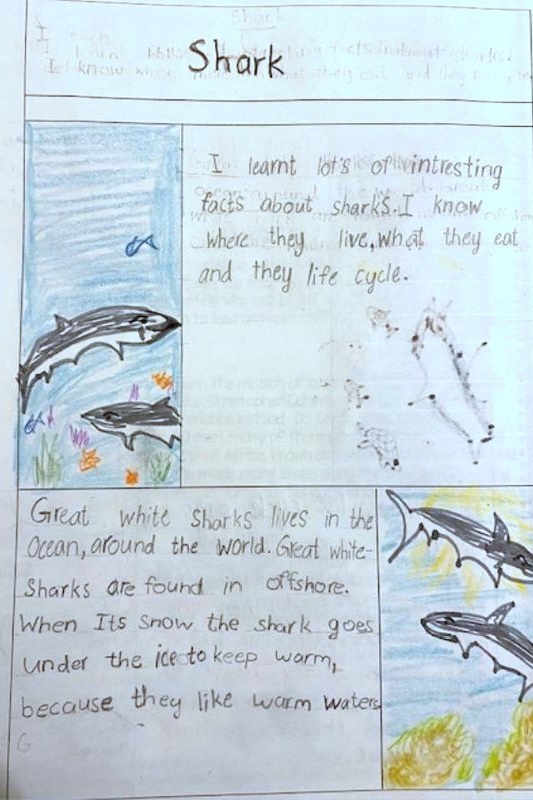 Shark
I learnt lot's of intresting
facts about sharks. I know
where they live, what they eat
and they life cycle.
Great white Sharks lives in the
Ocean, around the world. Great white-
Sharks are found in offshore.
When Its snow the shark goes
under the ice to keep warm,
because they like warm waters
G